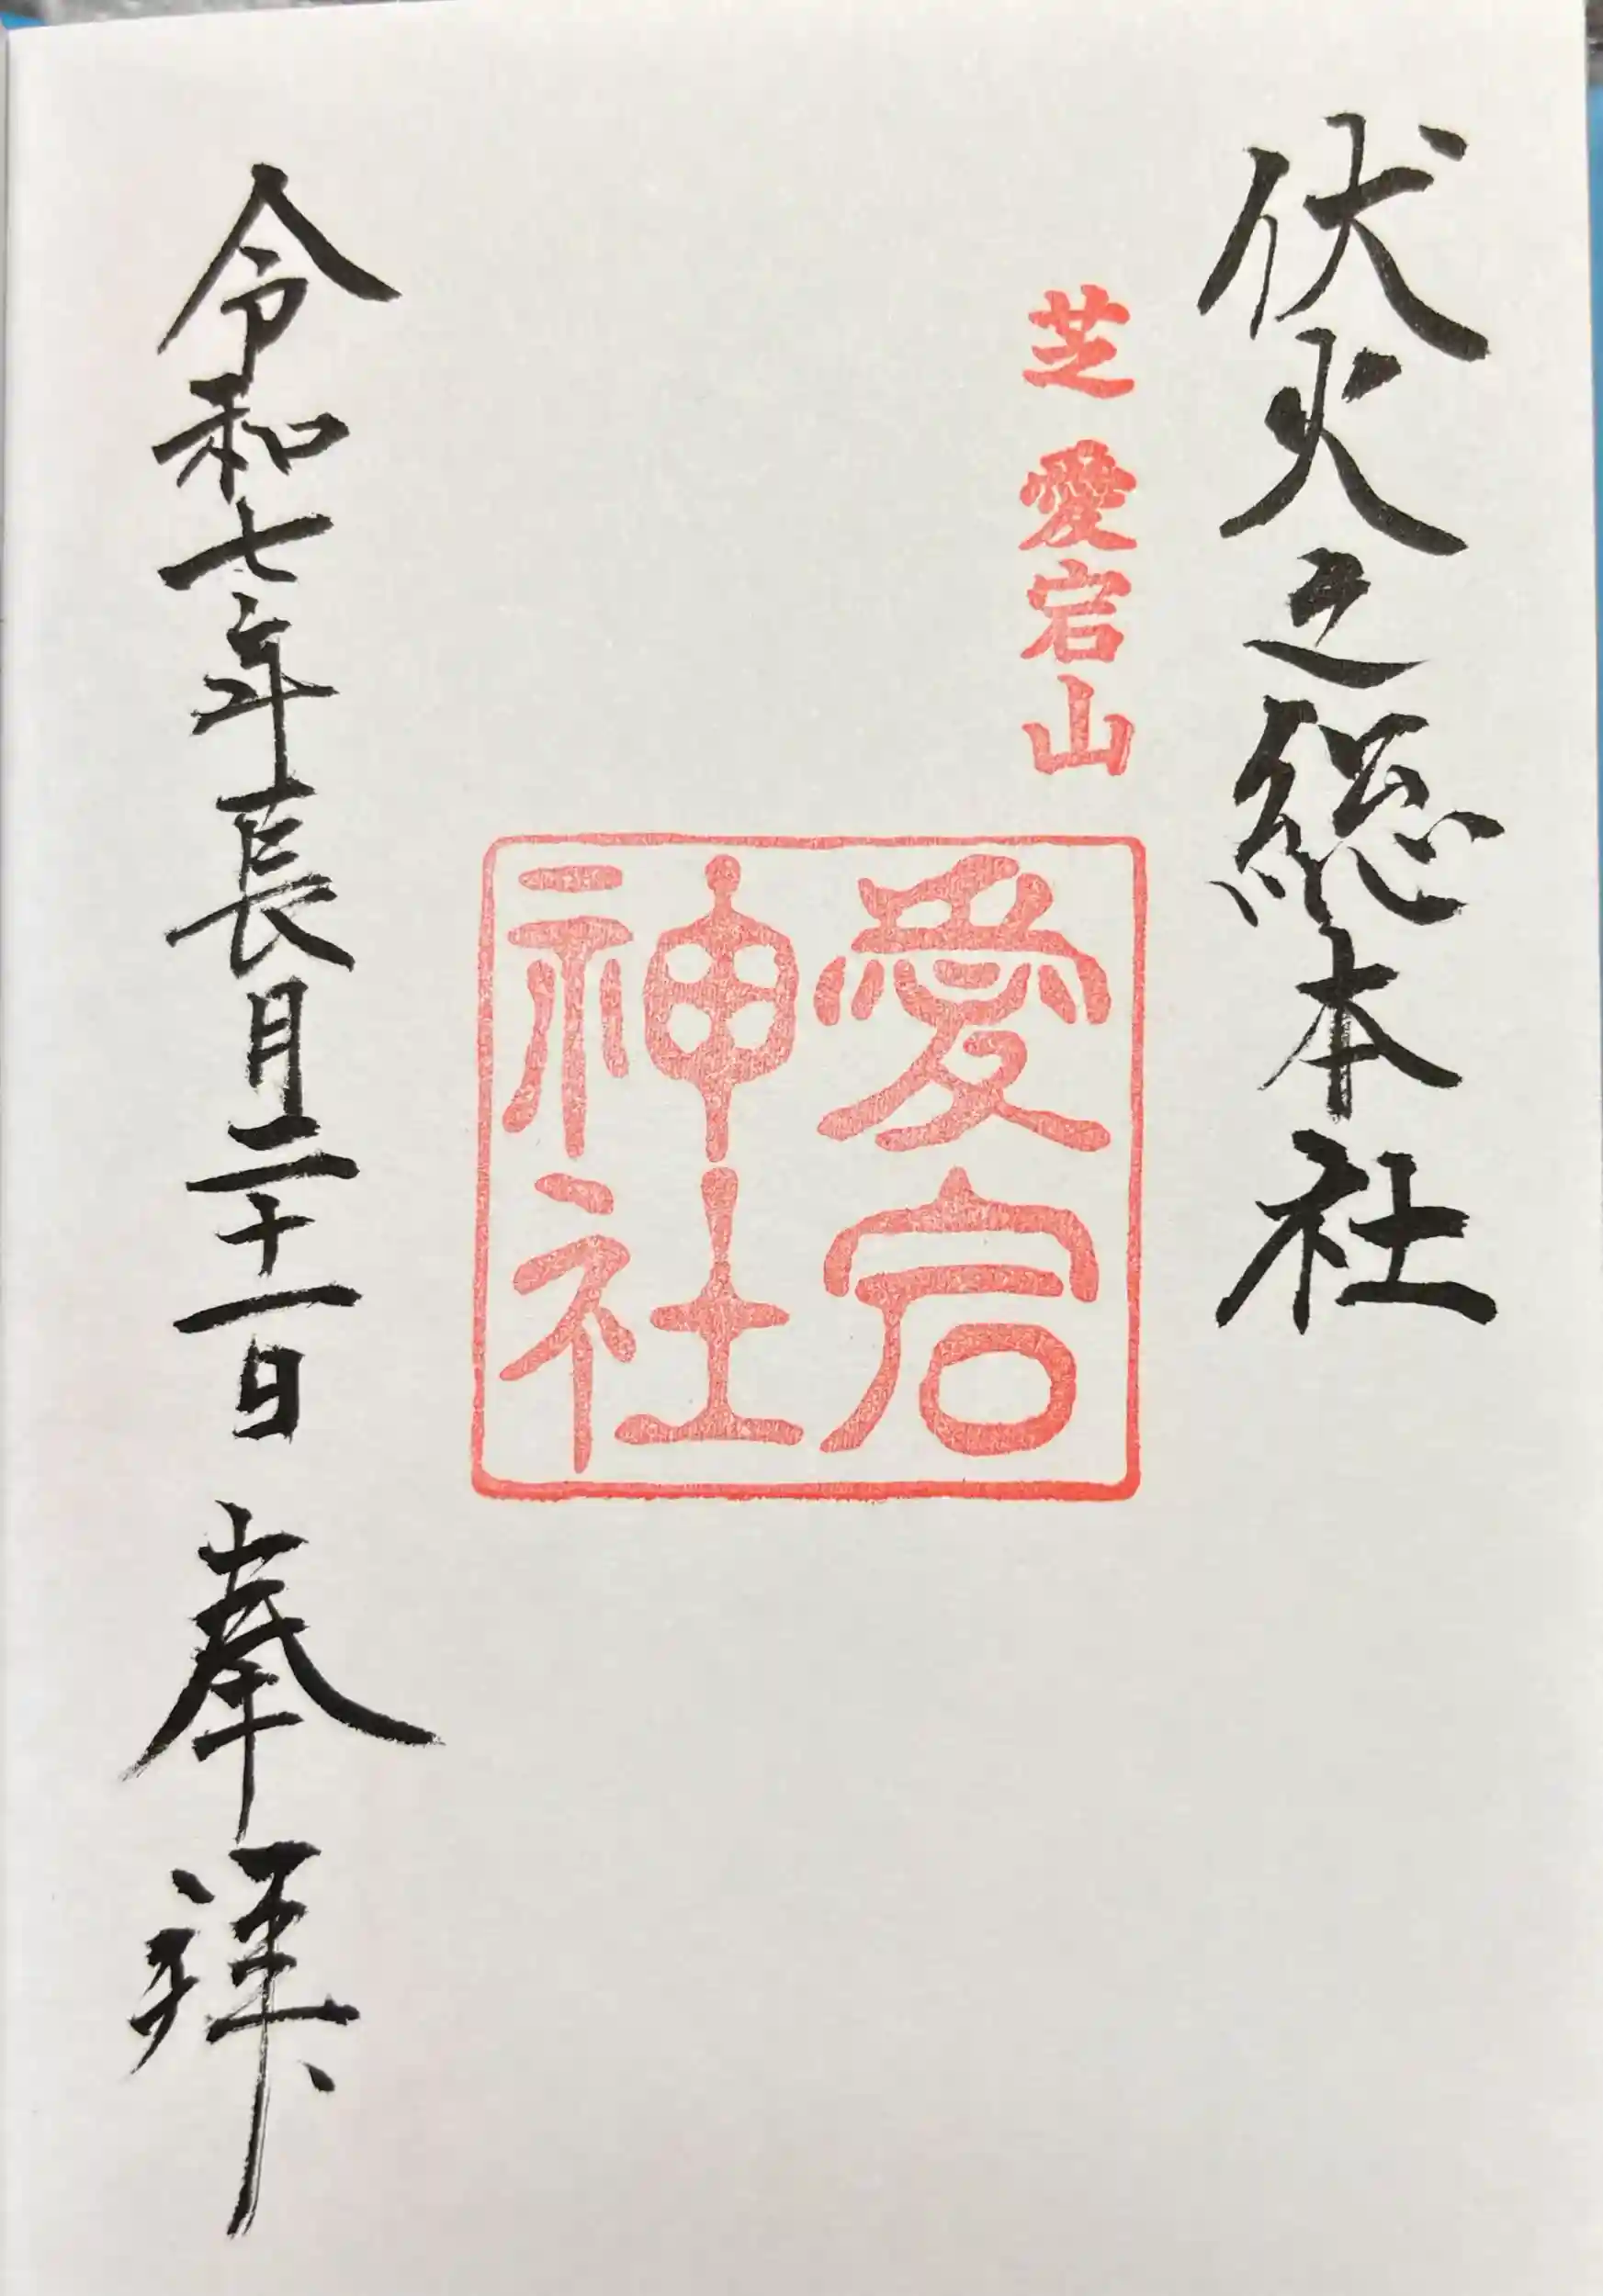 伏火之総本社
芝 愛宕山
愛宕
神社
令和七年長月二十一日 奉拝